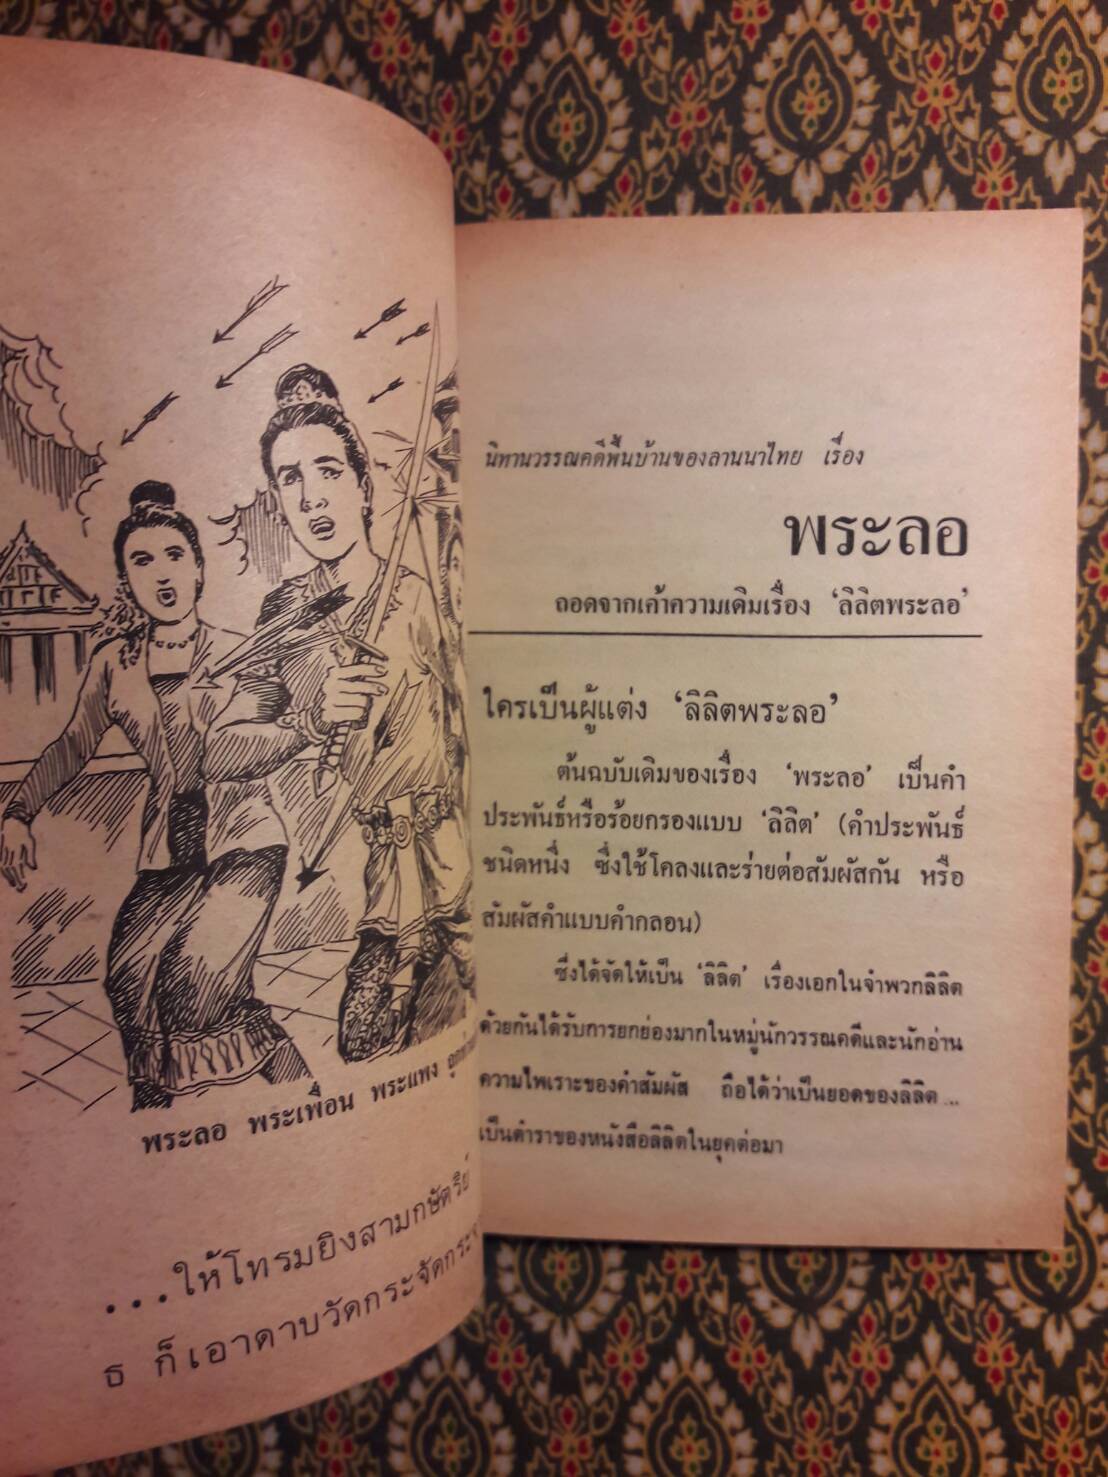 พระลอ พระเพื่อน พระแพง
...ให้โทรมยิงสามกษัตริย์
ธ ก็เอาดาบวัดกระจัดกระจ
นิทานวรรณคดีพื้นบ้านของลานนาไทย เรื่อง
พระลอ
ถอดจากเค้าความเดิมเรื่อง ‘ลิลิตพระลอ’
ใครเป็นผู้แต่ง ‘ลิลิตพระลอ’
ต้นฉบับเดิมของเรื่อง ‘พระลอ’ เป็นคำ
ประพันธ์หรือร้อยกรองแบบ ‘ลิลิต’ (คำประพันธ์
ชนิดหนึ่ง ซึ่งใช้โคลงและร่ายต่อสัมผัสกัน หรือ
สัมผัสคำแบบคำกลอน)
ซึ่งได้จัดให้เป็น ‘ลิลิต’ เรื่องเอกในจำพวกลิลิต
ด้วยกันได้รับการยกย่องมากในหมู่นักวรรณคดีและนักอ่าน
ความไพเราะของคำสัมผัส ถือได้ว่าเป็นยอดของลิลิต...
เป็นตำราของหนังสือลิลิตในยุคต่อมา